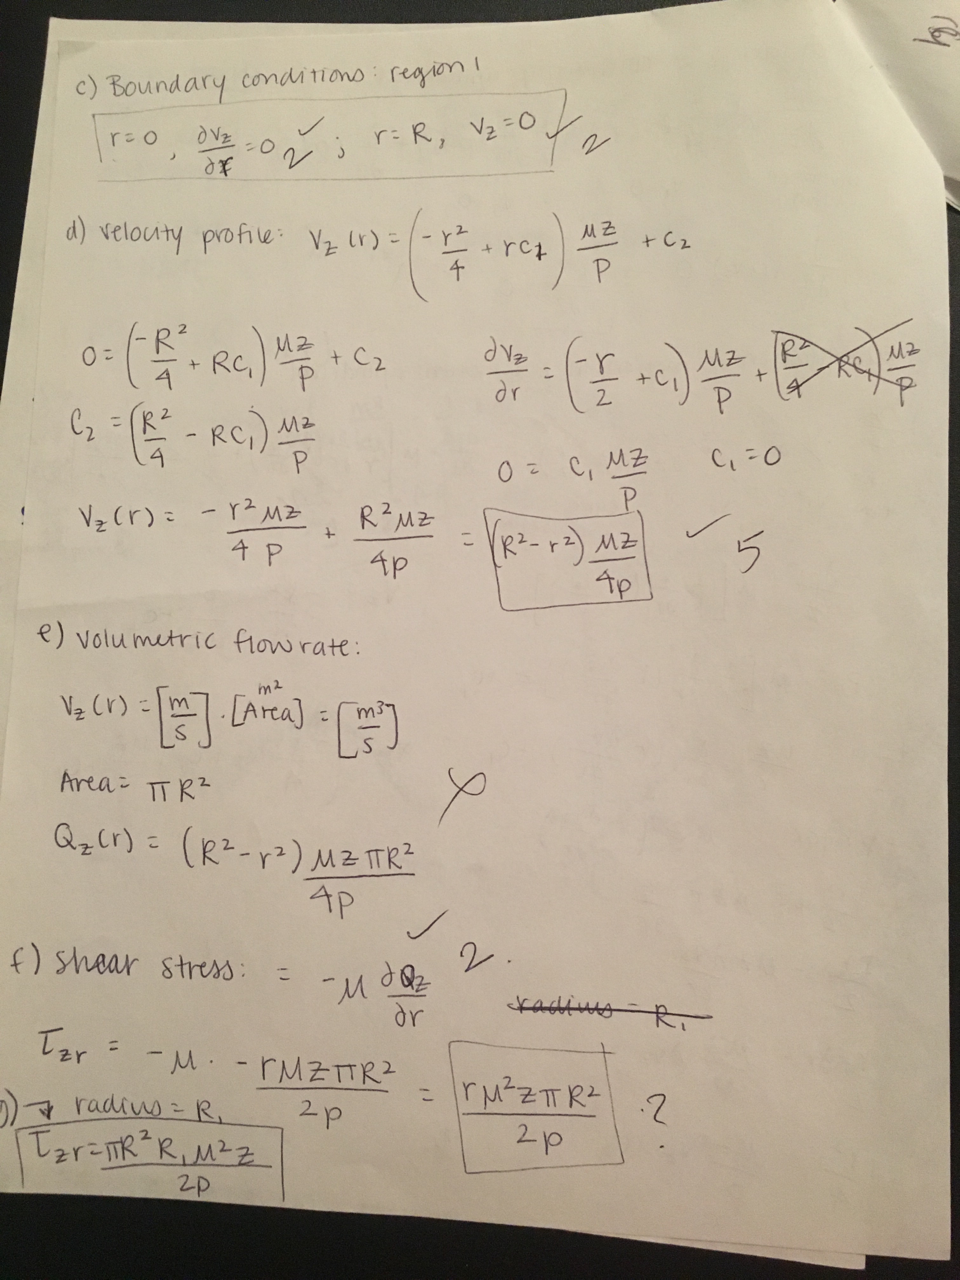 c) Boundary conditions: region 1
r=0, ∂Vz/∂r =0 ✓ 2 ; r=R, Vz=0 ✓ 2
d) velocity profile: Vz (r) = (-r²/4 + rc1) Mz/P + C2
0 = (-R²/4 + RC1) Mz/P + C2
∂Vz/∂r = (-r/2 + C1) Mz/P + (R²/4 - RC1) Mz/P
C2 = (R²/4 - RC1) Mz/P
0 = C1 Mz/P C1 = 0
Vz (r) = - r² Mz/4 P + R² Mz/4P = (R² - r²) Mz/4P ✓ 5
e) volumetric flowrate:
Vz (r) = [m/s] · [Area] m² = [m³/s]
Area = πR²
Qz (r) = (R² - r²) MzπR²/4P
f) shear stress: = -M ∂Qz/∂r ✓ 2.
radius = R1
τzr = -M · - rMzπR²/2P = rM²zπR²/2P .?
→ radius = R1
τzr = πR²R1M²z/2P